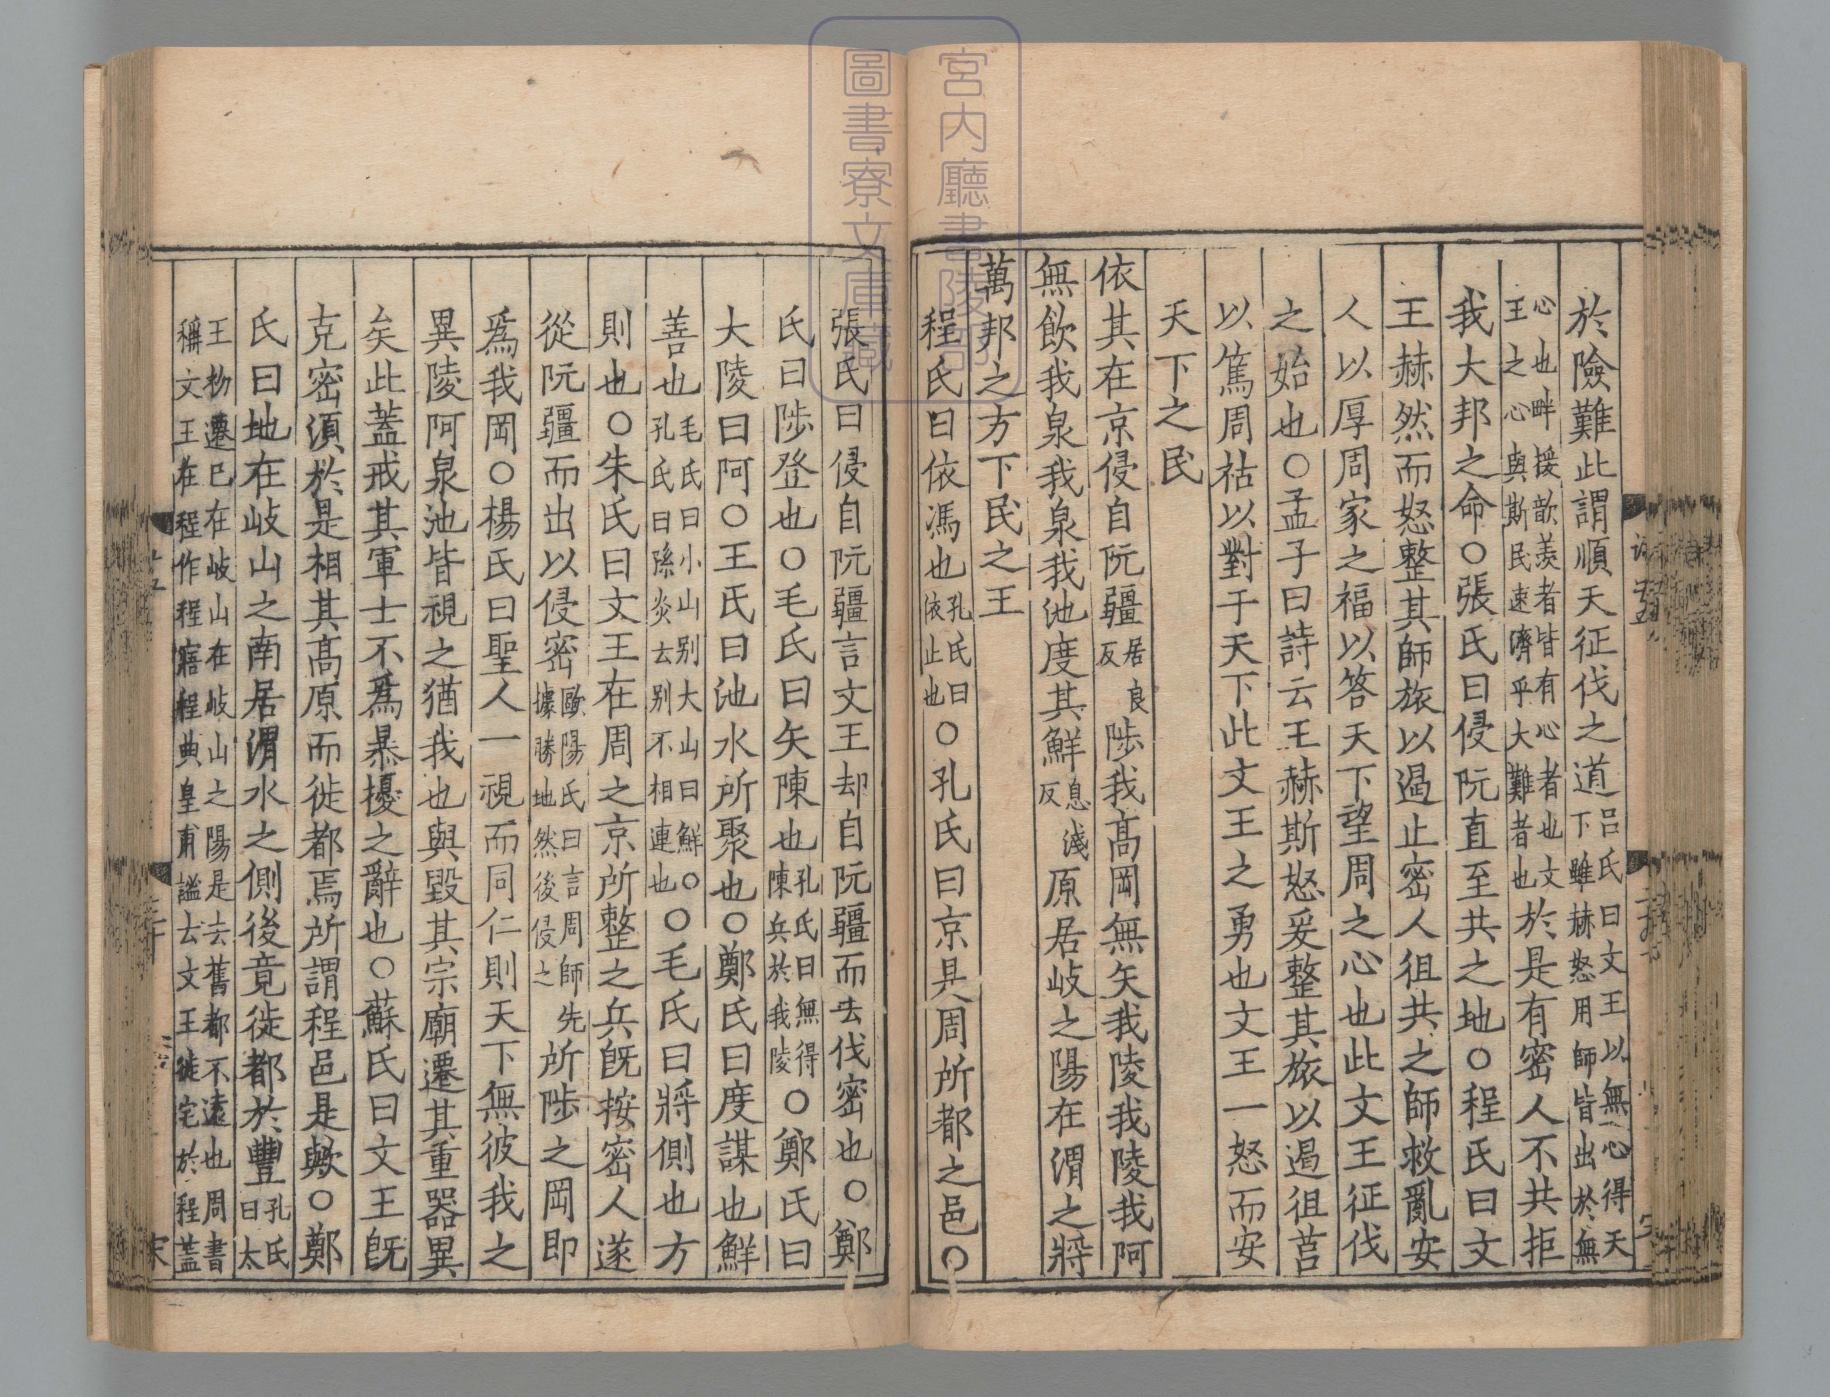 於險難此謂順天征伐之道呂氏曰文王以無心得天下雖赫怒用師皆出於無
心也畔援歆羨者皆有心者也文王之心與斯民速濟乎大難者也於是有密人不共拒
我大邦之命○張氏曰侵阮直至共之地○程氏曰文
王赫然而怒整其師旅以遏止密人徂共之師救亂安
人以厚周家之福以答天下望周之心也此文王征伐
之始也○孟子曰詩云王赫斯怒爰整其旅以遏徂莒
以篤周祜以對于天下此文王之勇也文王一怒而安
天下之民
依其在京侵自阮疆居良反陟我高岡無矢我陵我陵我阿
無飲我泉我泉我池度其鮮息淺反原居岐之陽在渭之將
萬邦之方下民之王
程氏曰依馮也孔氏曰依止也○孔氏曰京是周所都之邑○
張氏曰侵自阮疆言文王却自阮疆而去伐密也○鄭
氏曰陟登也○毛氏曰矢陳也孔氏曰無得陳兵於我陵○鄭氏曰
大陵曰阿○王氏曰池水所聚也○鄭氏曰度謀也鮮
善也毛氏曰小山别大山曰鮮○孔氏曰孫炎云别不相連也○毛氏曰將側也方
則也○朱氏曰文王在周之京所整之兵旣按密人遂
從阮疆而出以侵密歐陽氏曰言周師先據勝地然後侵之所陟之岡即
爲我岡○楊氏曰聖人一視而同仁則天下無彼我之
異陵阿泉池皆視之猶我也與毀其宗廟遷其重器異
矣此蓋戒其軍士不爲暴擾之辭也○蘇氏曰文王旣
克密須於是相其高原而徙都焉所謂程邑是歟○鄭
氏曰地在岐山之南居渭水之側後竟徙都於豐孔氏曰太
王初遷已在岐山在岐山之陽是去舊都不遠也周書稱文王在程作程寤程典皇甫謐云文王徙宅於程蓋
宮内廳書陵部
圖書寮文庫藏